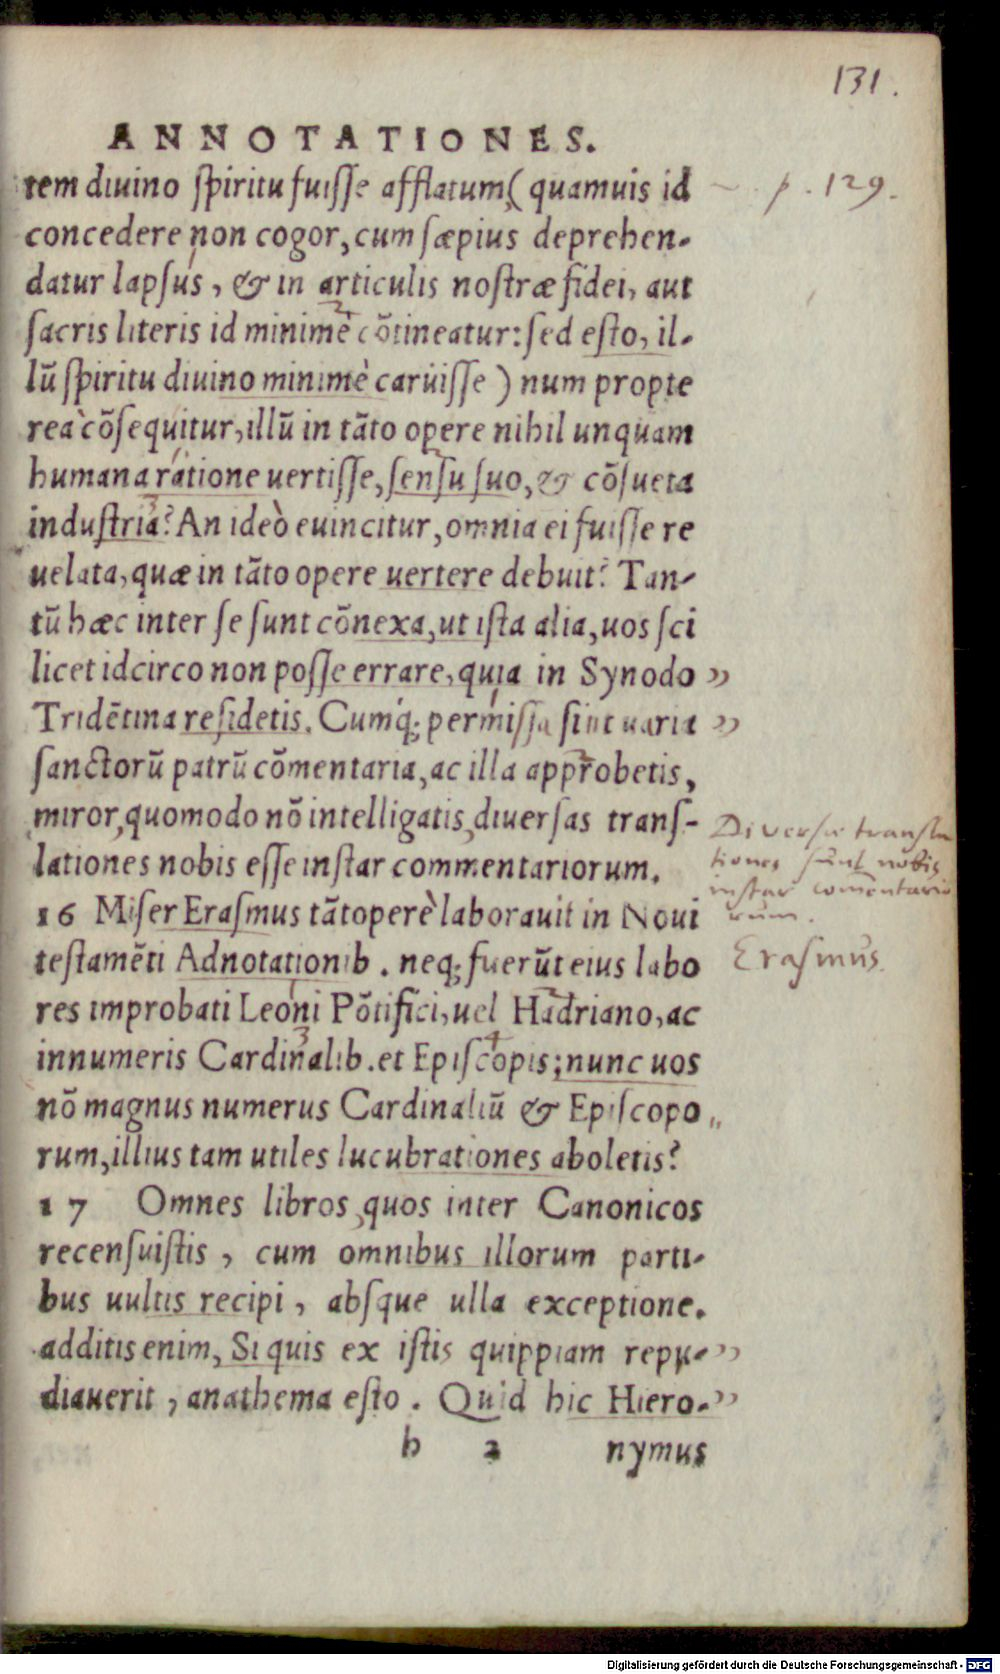 131.
ANNOTATIONES.
tem diuino ſpiritu fuiſſe afflatum, (quamuis id
p. 129.
concedere non cogor, cum ſæpius deprehen-
datur lapſus, & in articulis noſtræ fidei, aut
ſacris literis id minimè cõtineatur: ſed eſto, il-
lũ ſpiritu diuino minimè caruiſſe) num propte
rea cõſequitur, illũ in tãto opere nihil unquam
humana ratione uertiſſe, ſenſu ſuo, & cõſueta
induſtria? An ideò euincitur, omnia ei fuiſſe re
uelata, quæ in tãto opere uertere debuit? Tan-
tũ hæc inter ſe ſunt cõnexa, ut iſta alia, uos ſci
licet idcirco non poſſe errare, quia in Synodo ”
Tridẽtina reſidetis. Cumq́; permiſſa ſint uaria ”
ſanctorũ patrũ cõmentaria, ac illa approbetis,
miror, quomodo nõ intelligatis, diuerſas tranſ-
lationes nobis eſſe inſtar commentariorum.
Diuersæ transla
tiones sunt nobis
instar comentario
rum.
16 Miſer Eraſmus tãtoperè laborauit in Noui
teſtamẽti Adnotationib. neq; fuerũt eius labo
Erasmus.
res improbati Leoni Põtifici, uel Hadriano, ac
innumeris Cardinalib. et Epiſcopis; nunc uos
nõ magnus numerus Cardinaliũ & Epiſcopo „
rum, illius tam utiles lucubrationes aboletis?
17 Omnes libros, quos inter Canonicos
recenſuiſtis, cum omnibus illorum parti-
bus uultis recipi, abſque ulla exceptione.
additis enim, Si quis ex iſtis quippiam repu- ”
diauerit, anathema eſto. Quid hic Hiero- ”
h 2 nymus
Digitalisierung gefördert durch die Deutsche Forschungsgemeinschaft - DFG